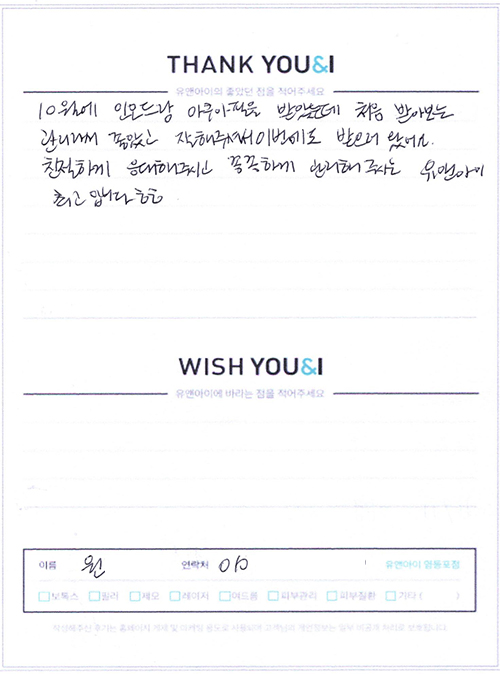 THANK YOU&I
유앤아이의 좋았던 점을 적어주세요
10월에 인모드랑 아쿠아필을 받았는데 처음 받아보는
관리라서 좋았고 잘해주셔서 이번에도 받으러 왔어요.
친절하게 응대해주시고 꼼꼼하게 관리해 주시는 유앤아이
최고 입니다 ㅎㅎ
WISH YOU&I
유앤아이에 바라는 점을 적어주세요
이름 원 연락처 010 유앤아이 영등포점
보톡스 필러 제모 레이저 여드름 피부관리 피부질환 기타 ( )
작성해주신 후기는 홈페이지 게재 및 마케팅 용도로 사용되며 고객님의 개인정보는 일부 비공개 처리로 보호됩니다.